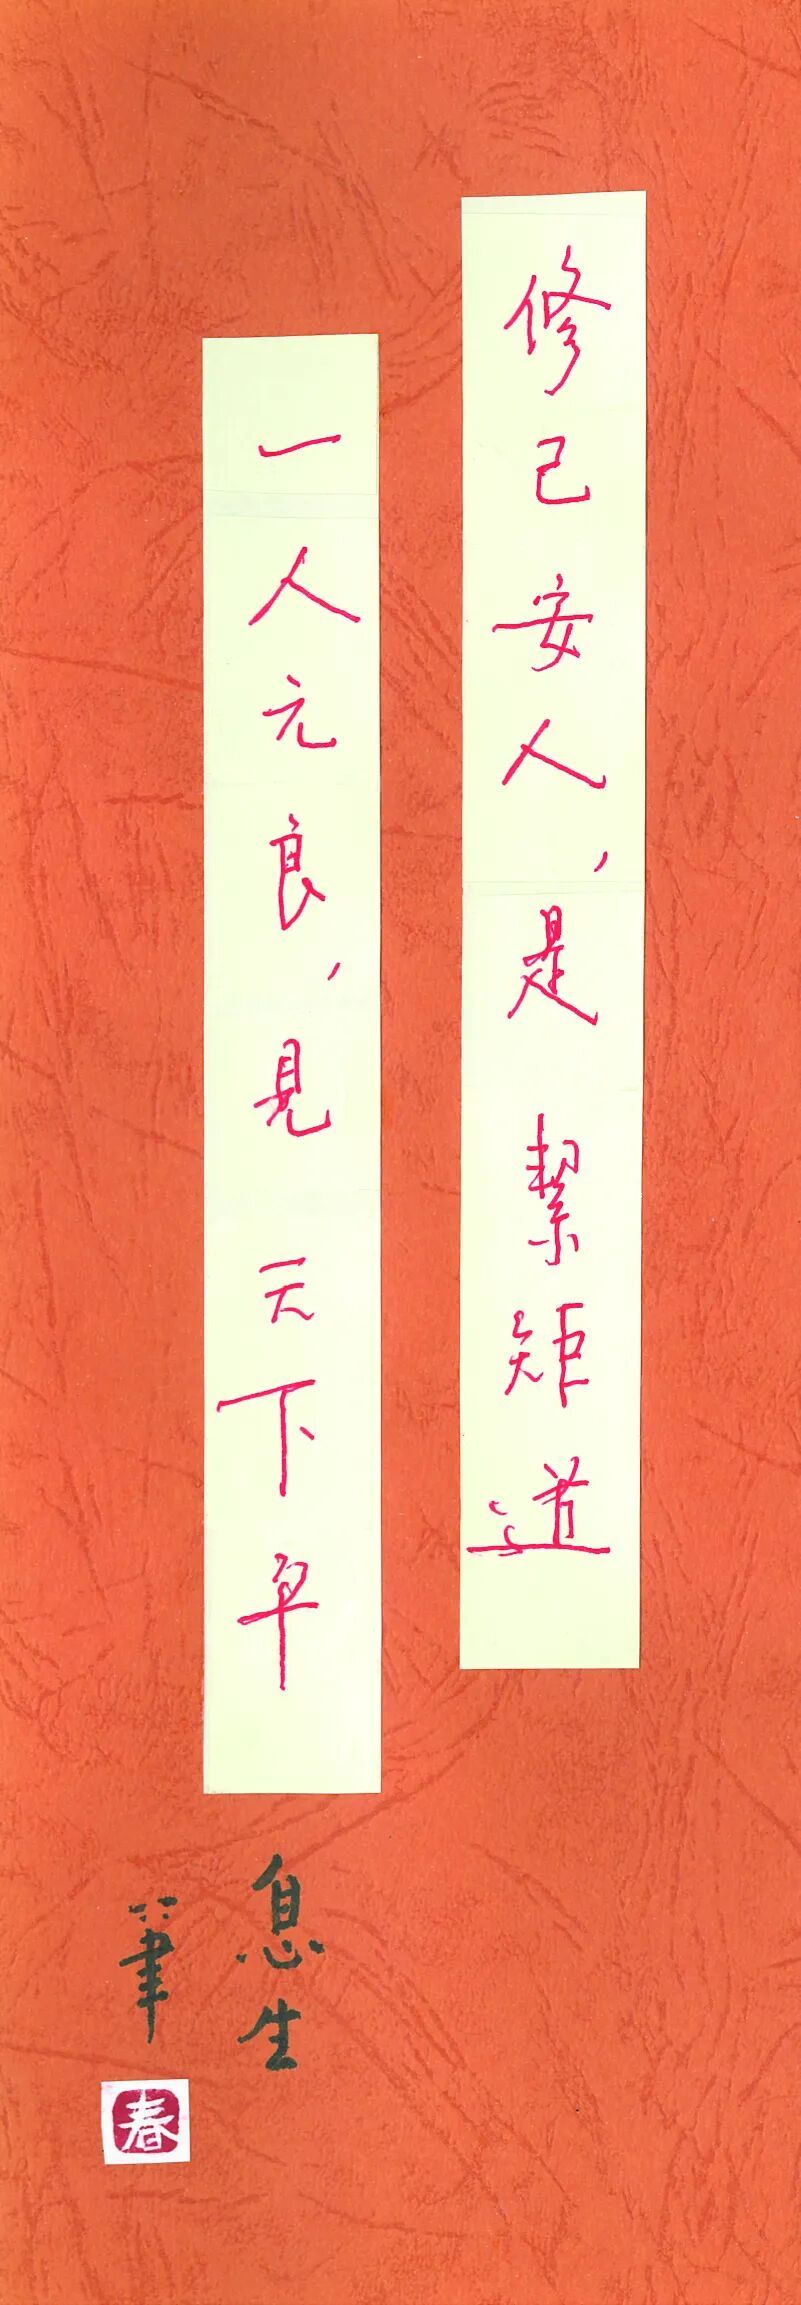 修己安人，是絜矩道
一人元良，見天下
息生
筆
春